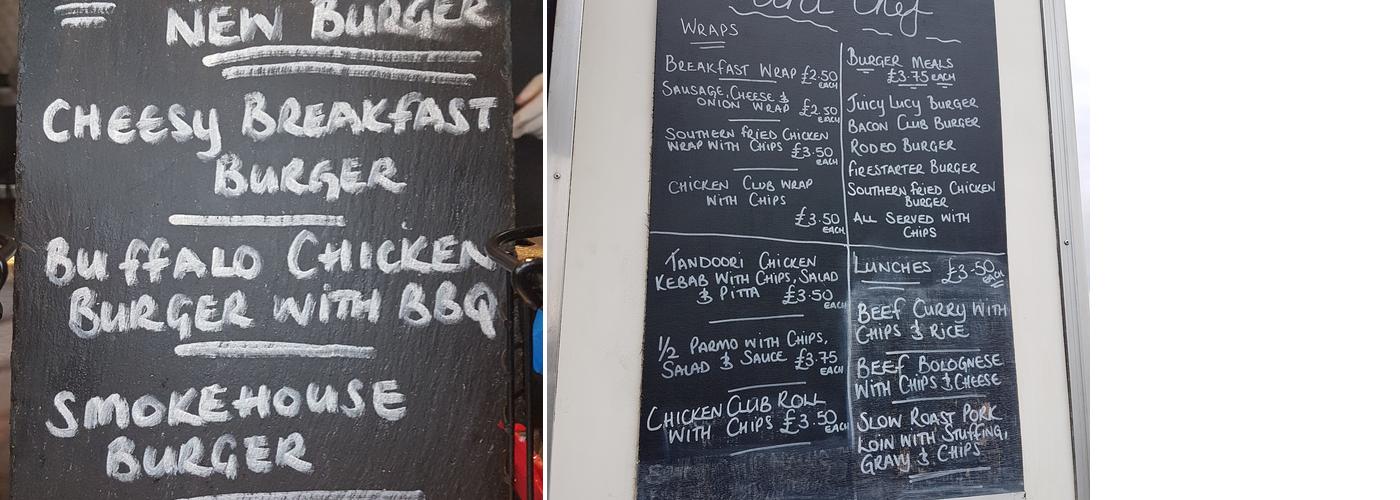 NEW BURGER
CHEESY BREAKFAST
BURGER
BUFFALO CHICKEN
BURGER WITH BBQ
SMOKEHOUSE
BURGER
Chef
WRAPS
BREAKFAST WRAP £2.50
EACH
SAUSAGE, CHEESE &
ONION WRAP £2.50
EACH
SOUTHERN FRIED CHICKEN
WRAP WITH CHIPS £3.50
EACH
CHICKEN CLUB WRAP
WITH CHIPS
£3.50
EACH
TANDOORI CHICKEN
KEBAB WITH CHIPS, SALAD
& PITTA £3.50
EACH
1/2 PARMO WITH CHIPS,
SALAD & SAUCE £3.75
EACH
CHICKEN CLUB ROLL
WITH CHIPS £3.50
EACH
BURGER MEALS
£3.75 EACH
JUICY LUCY BURGER
BACON CLUB BURGER
RODEO BURGER
FIRESTARTER BURGER
SOUTHERN FRIED CHICKEN
BURGER
ALL SERVED WITH
CHIPS
LUNCHES £3.50
EACH
BEEF CURRY WITH
CHIPS & RICE
BEEF BOLOGNESE
WITH CHIPS & CHEESE
SLOW ROAST PORK
LOIN WITH STUFFING,
GRAVY & CHIPS